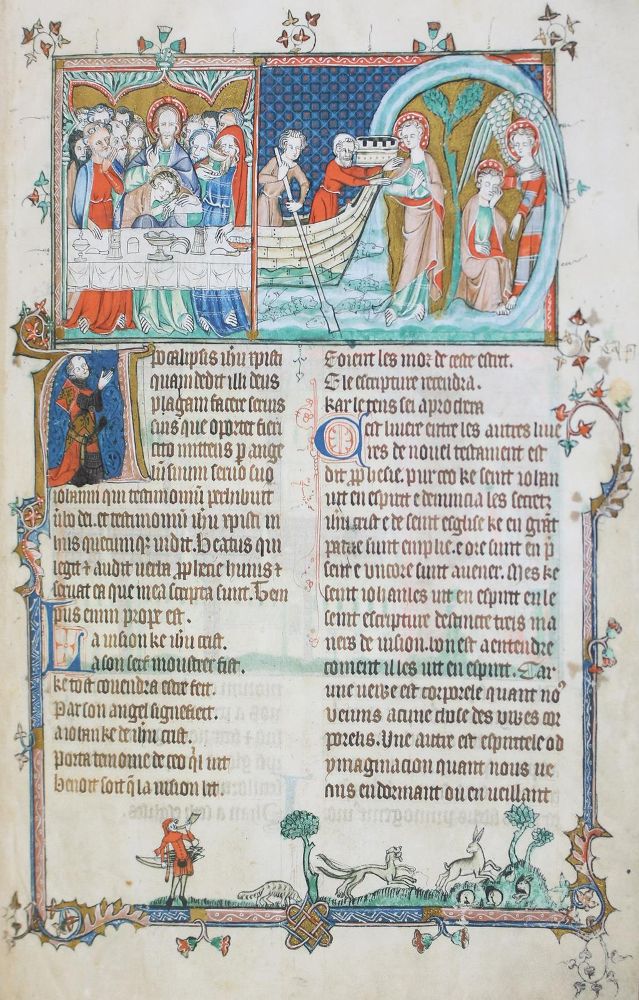 Apocalipsis ihū xpisti
quam dedit illi deus
palam facere seruis
suis que oportet fieri
cito mittens p ange
lū suum seruo suo
iohanni qui testimoniū perhibuit
ūbo dei. et testimoniū ihū xpisti in
hiis quecumqꝫ uidit. Beatus qui
legit ⁊ audit uerba ꝓphecie huius ⁊
seruat ea que in ea scripta sunt. Tem
pus enim prope est.
La uision ke ihū crist.
A son serf moustrer fist.
ke tost couendra estre feit.
Par son angel signefieit.
a iohan ke de ihū crist.
Porta temome de ceo qͥl uit
benoit soit qͥ la uision lit.
E oient les moz de ceste escrit.
E le escripture retendra.
kar le tens sei aprocera
Cest liuere entre les autres liue
res de nouel testament est
dit ꝓphesie. pur ceo ke seint iohan
uit en espirit e denuncia les secrez
ihū crist e de seint esglise ke en grāt
partie sunt emplie. e ore sunt en p
sent e uncore sunt auener. Mes ke
seint iohanes uit en espirit en le
seint escripture destincte treis ma
ners de uision. lon est a entendre
coment il les uit en espirit. Car
une ueue est corporele quant noꝰ
veeums acune chose des uuez cor
porelis. Une autre est espiritele od
ymaginacion quant nous ue
ems endormant ou en veillant